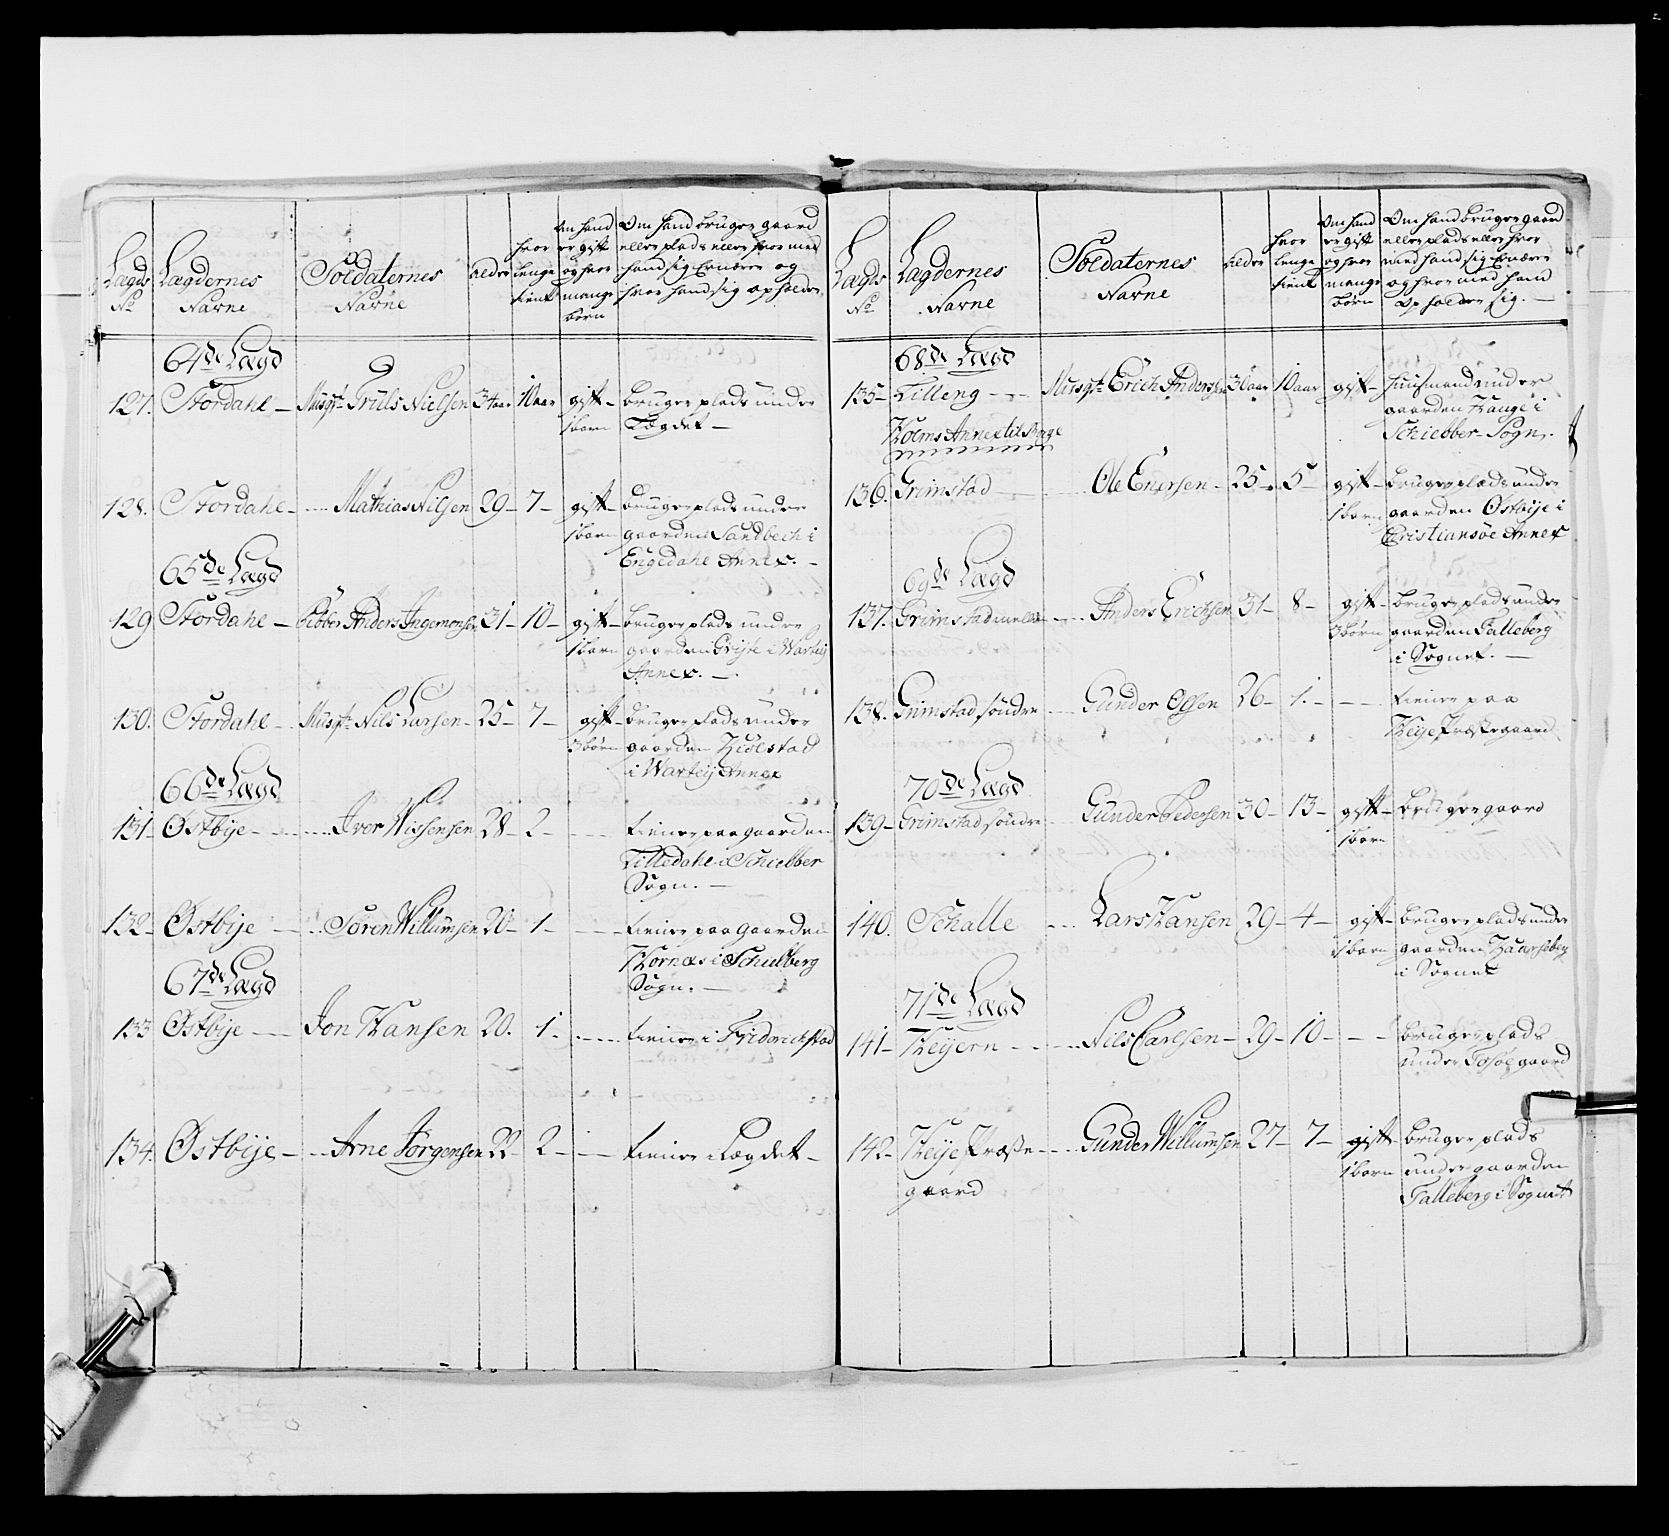 Lægds No
Lægdernes Navne
Soldaternes Navne
alder
hvor lenge tient
Om hand er gift og hvor mange børn
Om hand bruger gaard eller plads eller hvor med hand sig Ernærer og hvor hand sig opholder.
64de Lægd
127. Stordahl — Musqt. Truls Nielsen 34 aar 10 aar gift — bruger plads under
1 barn Lægdet —
128. Stordahl — Mathias Nilsen 29 — 7 — gift — bruger plads under
1 barn gaarden Sandbech i
Engedahl Annex. —
65de Lægd
129 Stordahl — Anders Ingemonsen 31 — 10 — gift — bruger plads under
1 barn gaarden i Warteig
Annex. —
130. Stordahl — Musqt. Nils Larsen — 25 — 7 — gift — bruger plads under
3 børn gaarden Kiølstad
i Warteig Annex
66de Lægd
131 — Østbije — Iver Nissensen 28 — 2 — tiener paa gaarden
Lilledahl i Schiebber
Sogn. —
132 — Østbije — Søren Willumsen 20 — 1 — tiener paa gaarden
Hornæs i Schielberg
Sogn. —
67de Lægd
133 Østbije — Jon Hansen 20. 1 — tiener i Friderichstad
134. Østbije — Arne Jørgensen 22 — 2 — tiener i Lægdet —
Lægds No
Lægdernes Navne
Soldaternes Navne
alder
hvor lenge tient
Om hand er gift og hvor mange børn
Om hand bruger gaard eller plads eller hvor med hand sig Ernærer og hvor med hand Opholder sig. —
68de Lægd
135 — Lilleng — Musqt. Erich Andersen 30 aar 10 aar gift — Huusmand under
gaarden Hauge i
Schiebber Sogn.
Holms Annex til Rage
136. Grimstad — Ole Enersen — 25 — 5 — gift — bruger plads under
1 barn gaarden Østbije i
Christiansøe Annex
69de Lægd
137. Grimstad — Anders Erichsen 31 — 8 — gift — bruger plads under
3 børn gaarden Talleberg
i Sognet. —
138. Grimstad søndre — Gunder Olsen 26 — 1. — tiener paa
Heije Præstegaard
70de Lægd
139 — Grimstad søndre — Gunder Pedersen 30 — 13 — gift — bruger gaard
1 barn
140. Schalle — Lars Hansen 29 — 4 — gift — bruger plads under
1 barn gaarden
i Sognet
71de Lægd
141 — Heijern — Nils Carlsen — 29 — 10 — bruger plads
under Tosøe gaard
142 — Heije Præste — Gunder Willumsen 27 — 7 — gift — bruger plads
gaard 1 barn under gaarden
Talleberg i Sognet